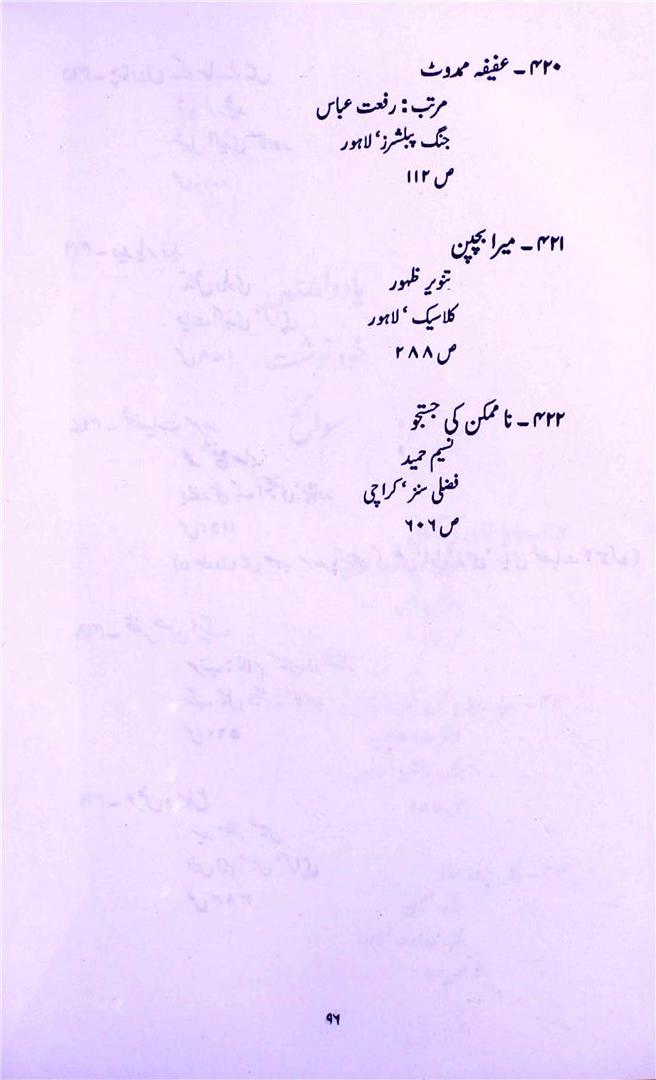 ۴۲۰ ـ عفیفہ ممدوٹ
مرتب : رفعت عباس
جنگ پبلشرز‘ لاہور
ص ۱۱۲
۴۲۱ ـ میرا بچپن
تنویر ظہور
کلاسیک ‘ لاہور
ص ۲۸۸
۴۲۲ ـ ناممکن کی جستجو
نسیم حمید
فضلی سنز‘ کراچی
ص ۶۰۶
۹۶